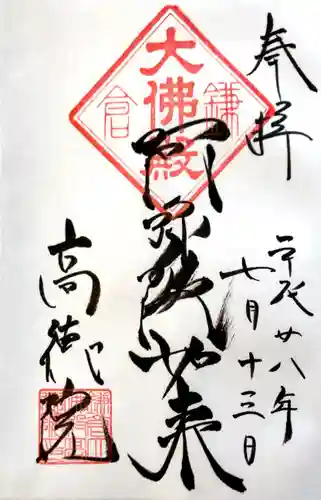 奉拝
平成廿八年
七月十三日
鎌倉
大佛殿
阿弥陀如来
高徳院